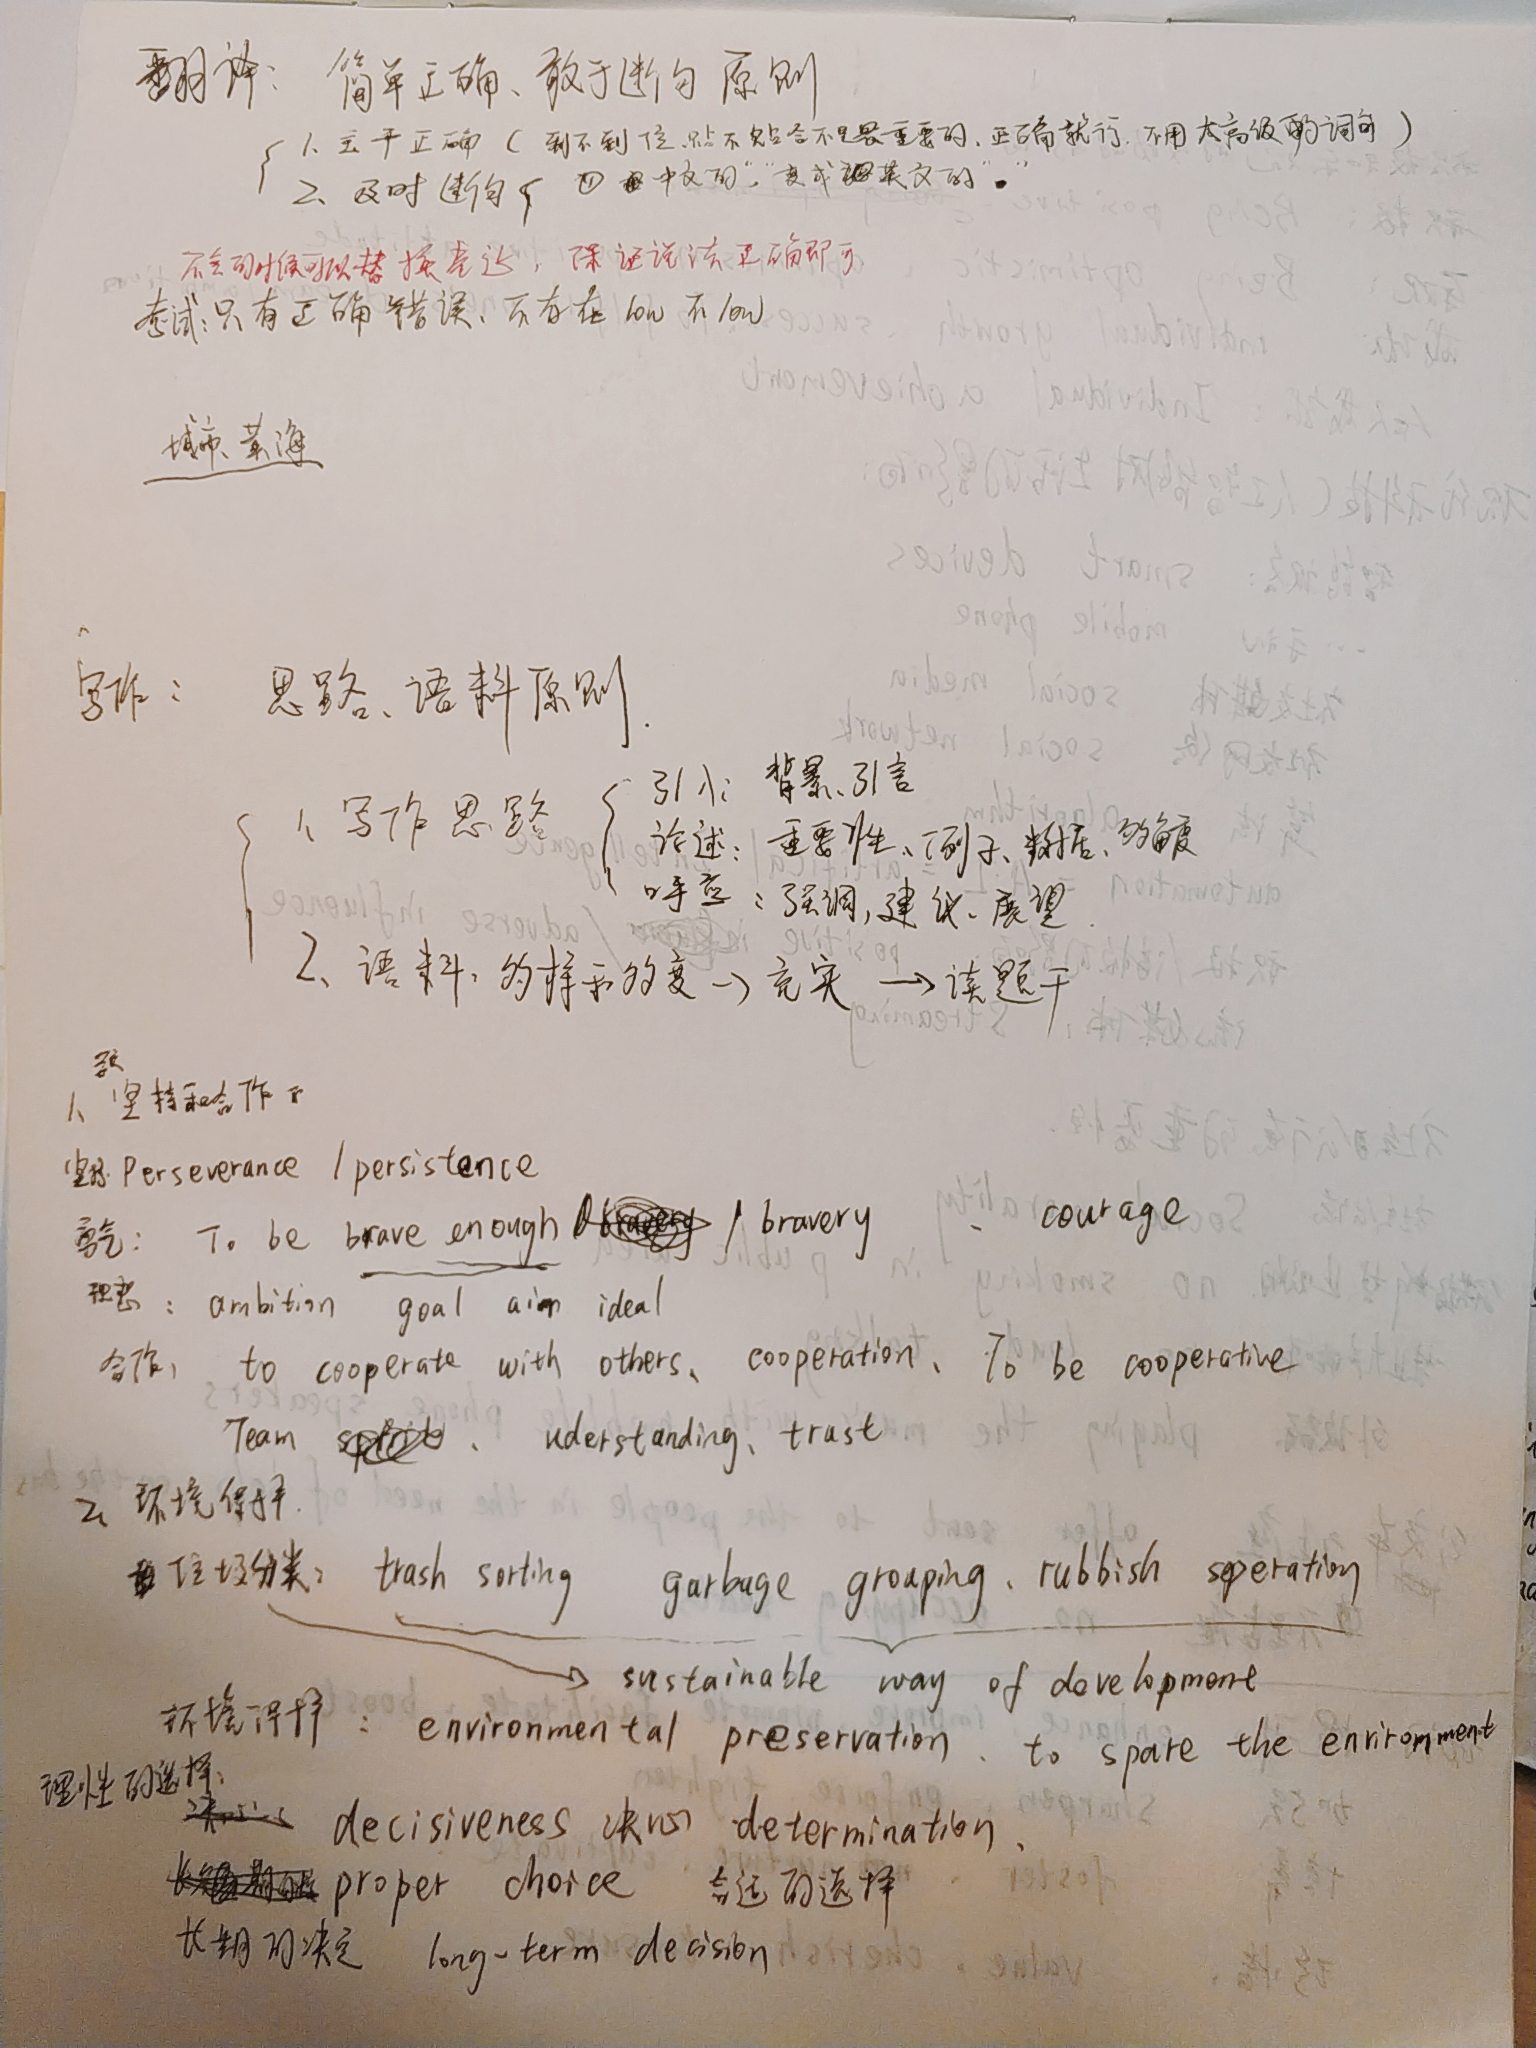 翻译： 简单正确、敢于断句 原则
1、主干正确（到不到位、贴不贴合不是最重要的、正确就行、不用太高级的词句）
2、及时断句 中文的“，”变成英文的“.”
不会的时候可以替换表达，保证说法正确即可
考试：只有正确与错误、不存在 low 不 low
城市、黄海
写作： 思路、语料原则.
1、写作思路
引入： 背景、引言
论述： 重要性、例子、数据、多角度
呼应：强调，建议、展望.
2、语料：多样和多度→充实 →读题干
1、坚持和合作
坚持 Perseverance / persistence
勇气： To be brave enough / bravery 、 courage
理想： ambition goal aim ideal
合作： to cooperate with others、cooperation、To be cooperative
Team 、 uderstanding、trust
2、环境保护.
垃圾分类： trash sorting garbage grouping、rubbish seperation
sustainable way of development
环境保护： environmental preservation、to spare the environment
理性的选择：
decisiveness 决心 determination、
proper choice 合适的选择
长期的决定 long-term decision